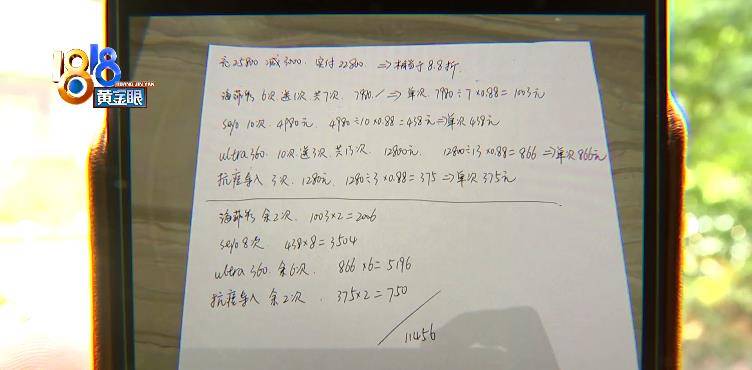 1818
HUANG JIN YAN
黄金眼
充25800 减3000. 实付22800 ⇒ 相当于8.8折.
海菲秀 6次送1次 共7次. 7980/ ⇒ 单次 7980÷7×0.88=1003元
seyo 10次. 4980元. 4980÷10×0.88=438元⇒单次438元
ultra 360. 10次送3次. 共13次. 12800元. 12800÷13×0.88=866 ⇒单次866元
抗痘导入 3次. 1280元. 1280÷3×0.88=375 ⇒单次375元
海菲秀 余2次. 1003×2=2006
seyo 8次. 438×8=3504
ultra 360. 余6次. 866×6=5196
抗痘导入 余2次. 375×2=750
11456